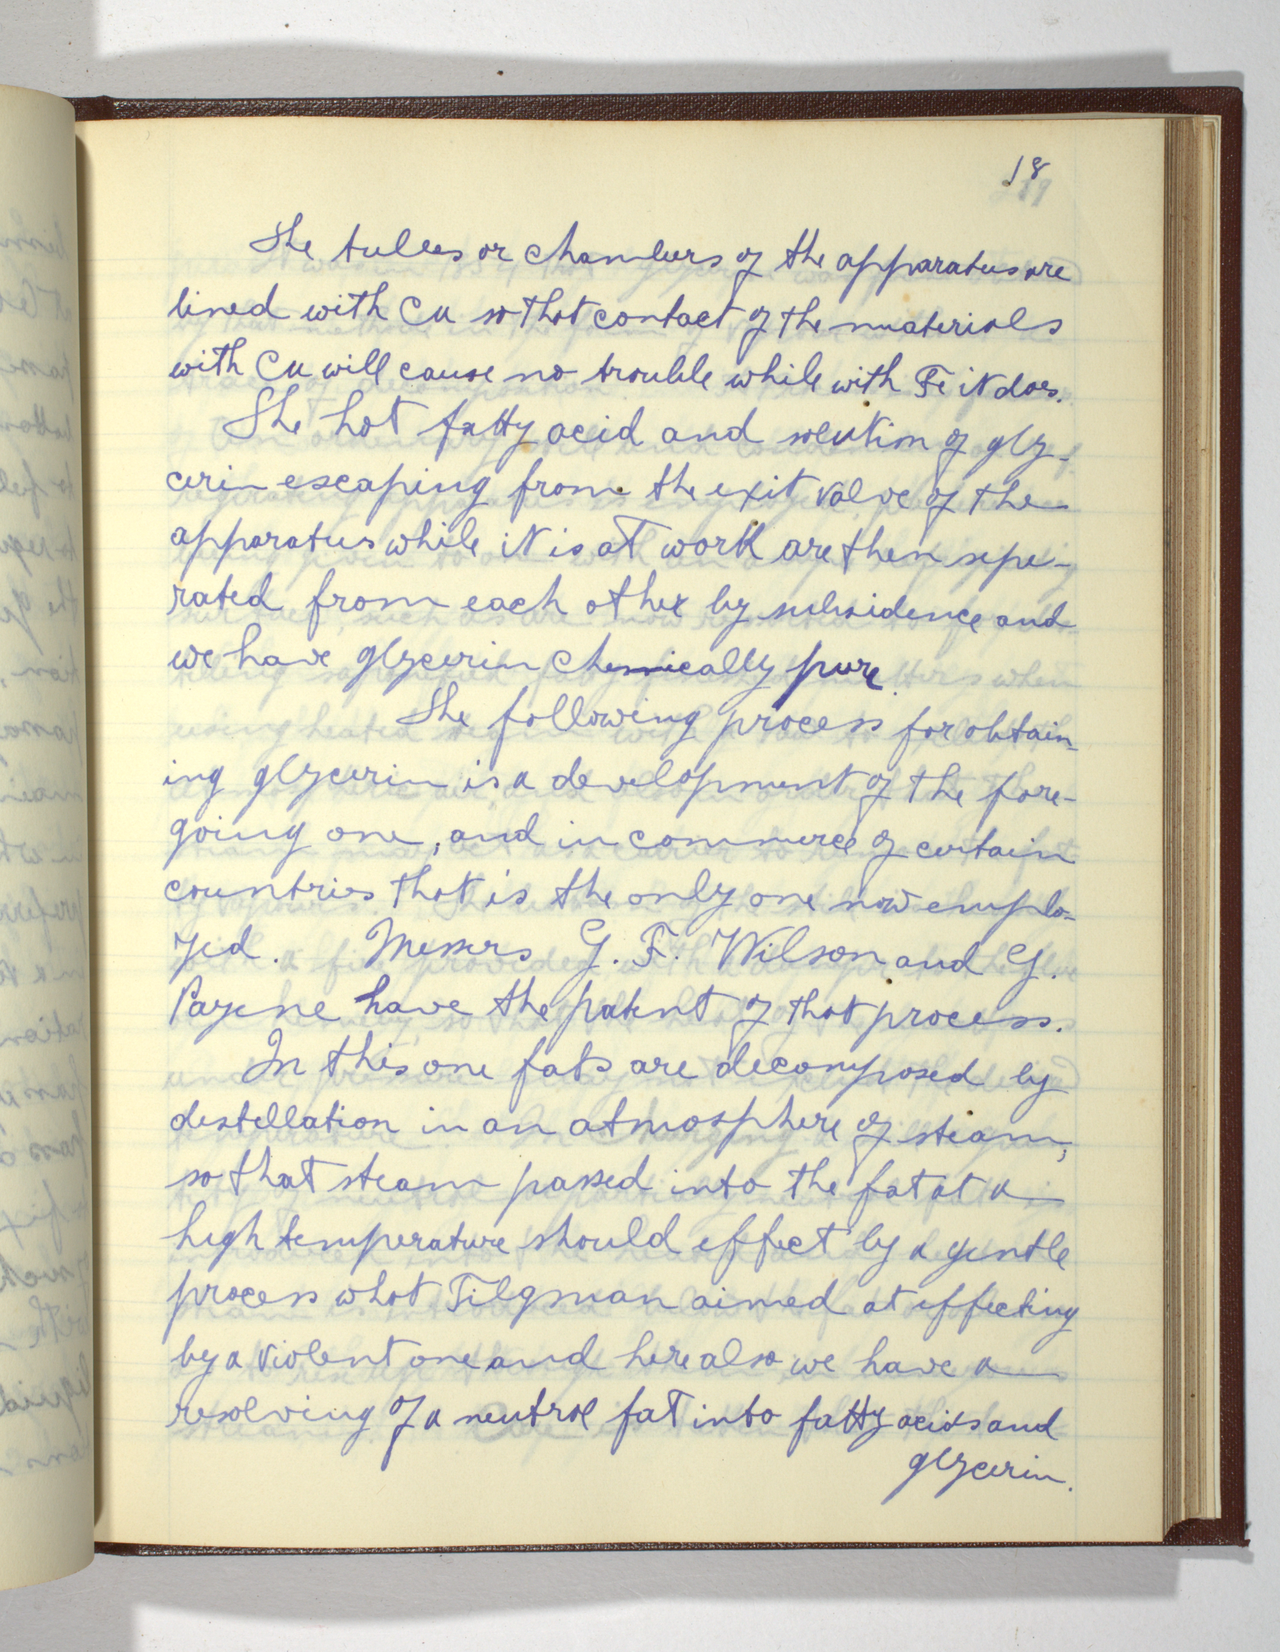 18
The tubes or chambers of the apparatus are
lined with Cu so that contact of the materials
with Cu will cause no trouble while with Fe it does.
The hot fatty acid and solution of gly-
cerin escaping from the exit valve of the
apparatus while it is at work are then sepe-
rated from each other by subsidence and
we have glycerin chemically pure.
The following process for obtain-
ing glycerin is a development of the fore-
going one, and in commerce of certain
countries that is the only one now emplo-
yed. Messrs G. F. Wilson and G.
Payene have the patent of that process.
In this one fats are decomposed by
destellation in an atmosphere of steam,
so that steam passed into the fat at a
high temperature should effect by a gentle
process what Tilgman aimed at effecting
by a violent one and here also we have a
resolving of a neutral fat into fatty acids and
glycerin.